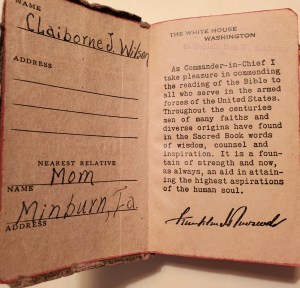 NAME
Claiborne J. Wilson
ADDRESS
NEAREST RELATIVE
Mom
NAME
Minburn, Ia
ADDRESS
THE WHITE HOUSE
WASHINGTON
As Commander-in-Chief I
take pleasure in commending
the reading of the Bible to
all who serve in the armed
forces of the United States.
Throughout the centuries
men of many faiths and
diverse origins have found
in the Sacred Book words
of wisdom, counsel and
inspiration. It is a foun-
tain of strength and now,
as always, an aid in attain-
ing the highest aspirations
of the human soul.
Franklin D Roosevelt